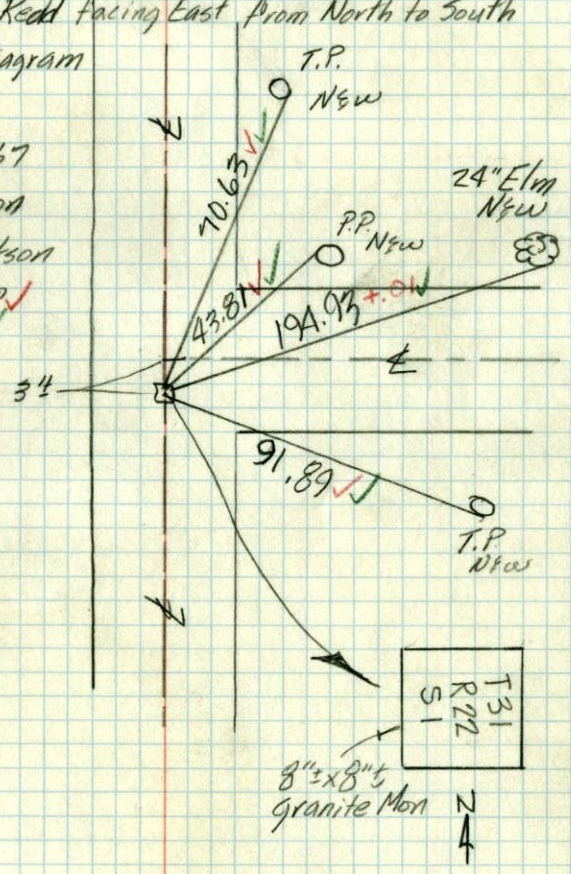 Read facing East from North to South
agram
T.P.
New
70.63
24" Elm
New
P.P. New
43.81
194.93 +.01
℄
3"±
℄
℄
91.89
T.P.
New
T31
R22
S1
8"±x8"±
Granite Mon
N